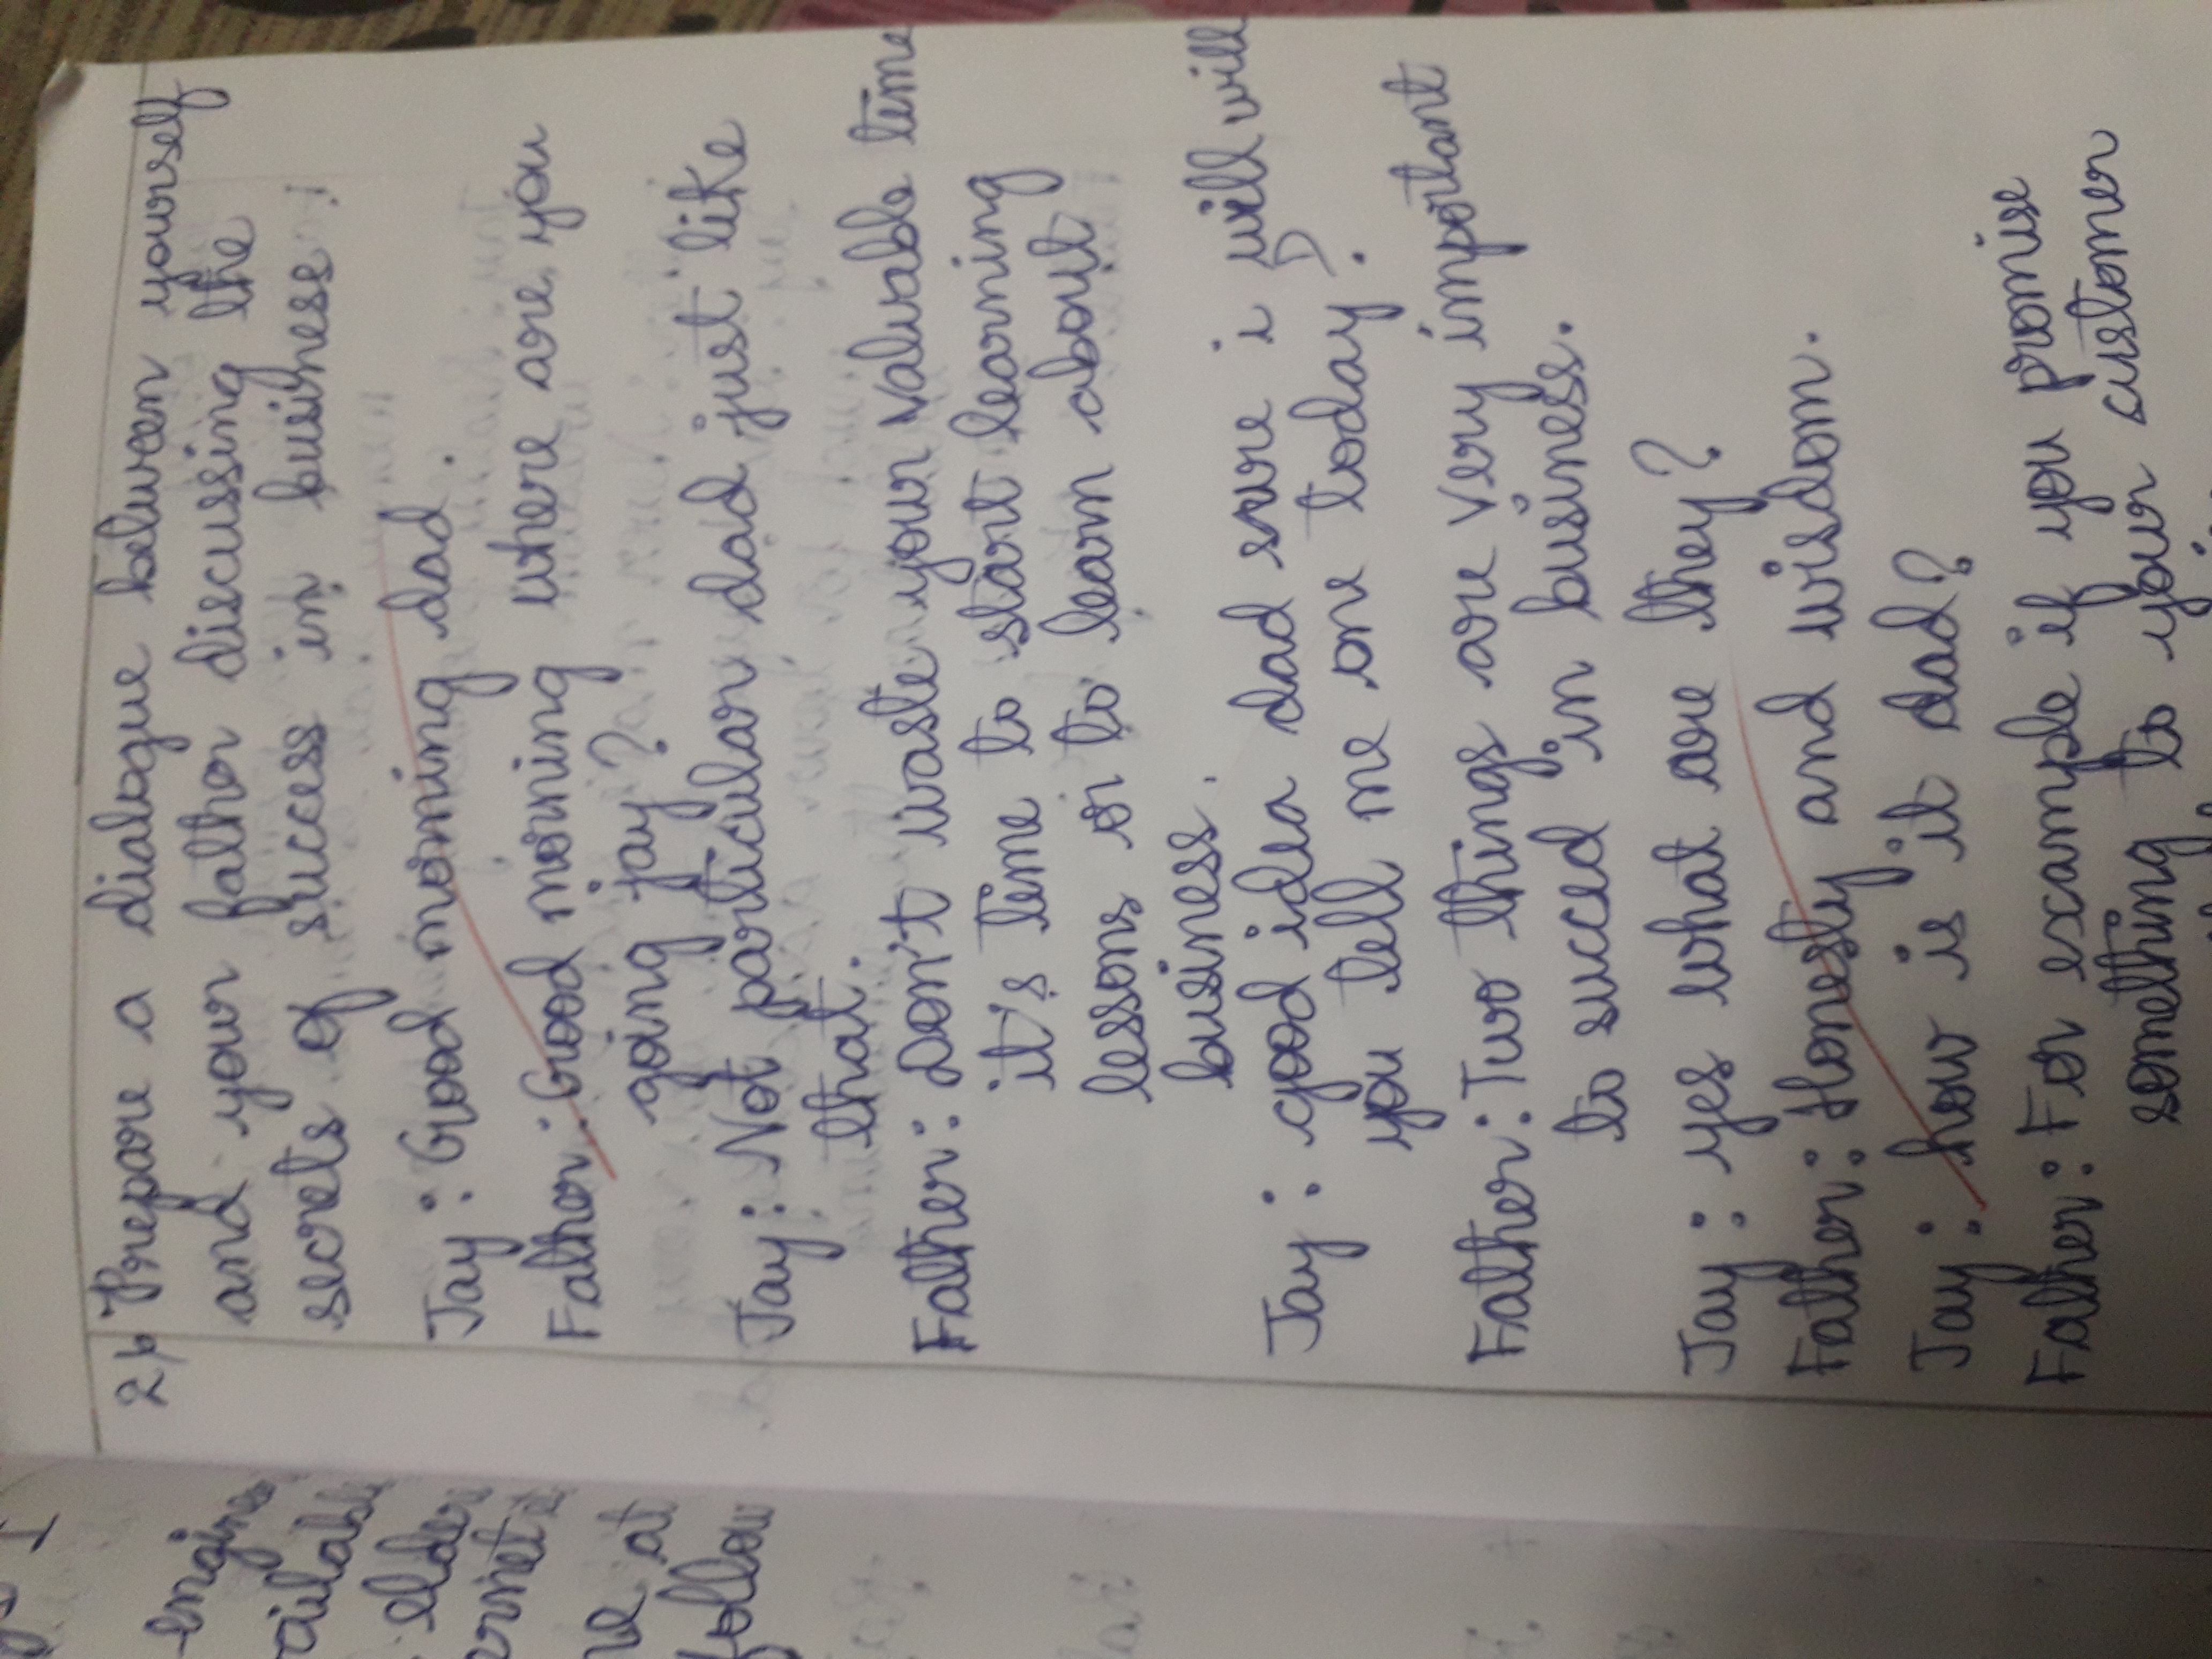 gs I
engines
ailable
elder
ernet
ve at
follow
2) Prepare a dialogue between yourself
and your father discussing the
secrets of success in business :
Jay : Good morning dad .
Father : Good morning where are you
going jay ?
Jay : Not particular dad just like
that .
Father : Don't waste your valuable time
it's time to start learning
lessons or to learn about
business .
Jay : good idea dad sure i will will
you tell me one today ?
Father : Two things are very important
to succed in business .
Jay : yes what are they ?
Father : Honesty and wisdom .
Jay : how is it dad ?
Father : For example if you promise
something to your customer